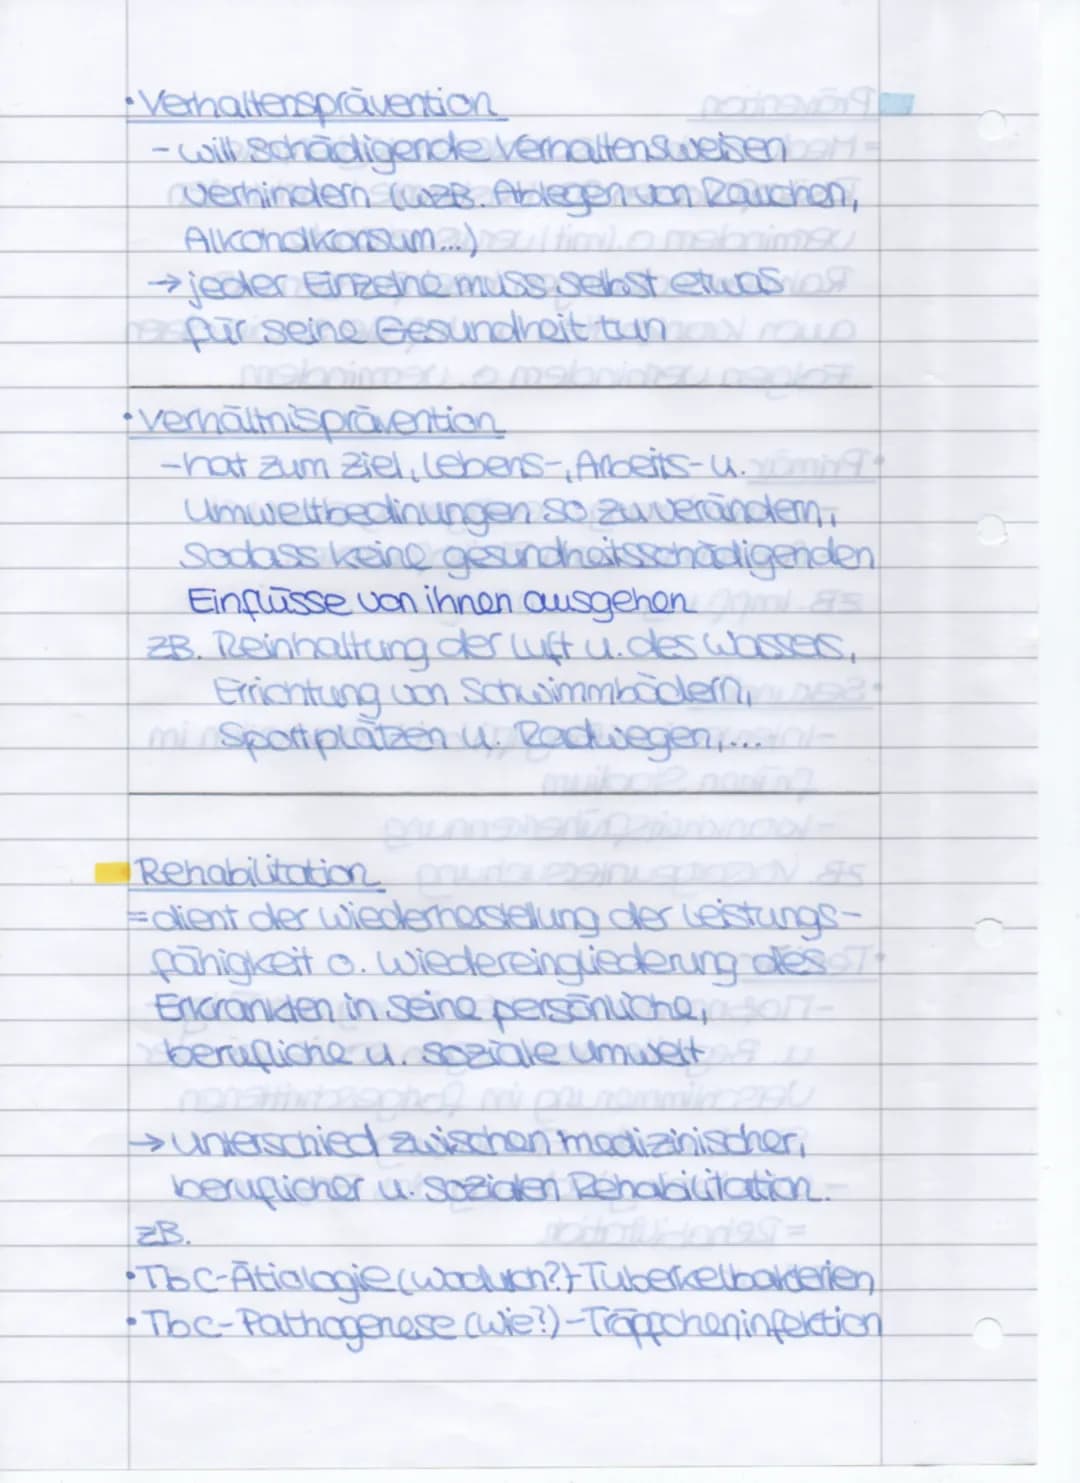 • Verhaltensprävention
- will schädigende Verhaltensweisen
verhindern (wzB. Ablegen von Rauchen,
Alkoholkonsum...)
→ jeder Einzelne muss selbst etwas
für seine Gesundheit tun
• Verhältnisprävention
- hat zum Ziel, Lebens-, Arbeits- u.
Umweltbedinungen so zu verändern,
sodass keine gesundheitsschädigenden
Einflüsse von ihnen ausgehen
zB. Reinhaltung der Luft u. des Wassers,
Errichtung von Schwimmbädern,
Sportplätzen u. Radwegen,...
Rehabilitation
= dient der Wiederherstellung der Leistungs-
fähigkeit o. Wiedereingliederung des
Erkrankten in seine persönliche,
berufliche u. soziale Umwelt
→ unterschied zwischen medizinischer,
beruflicher u. sozialen Rehabilitation.
zB.
• Tbc-Ätiologie (wodurch?) - Tuberkelbakterien
• Tbc-Pathogenese (wie?) - Tröpfcheninfektion